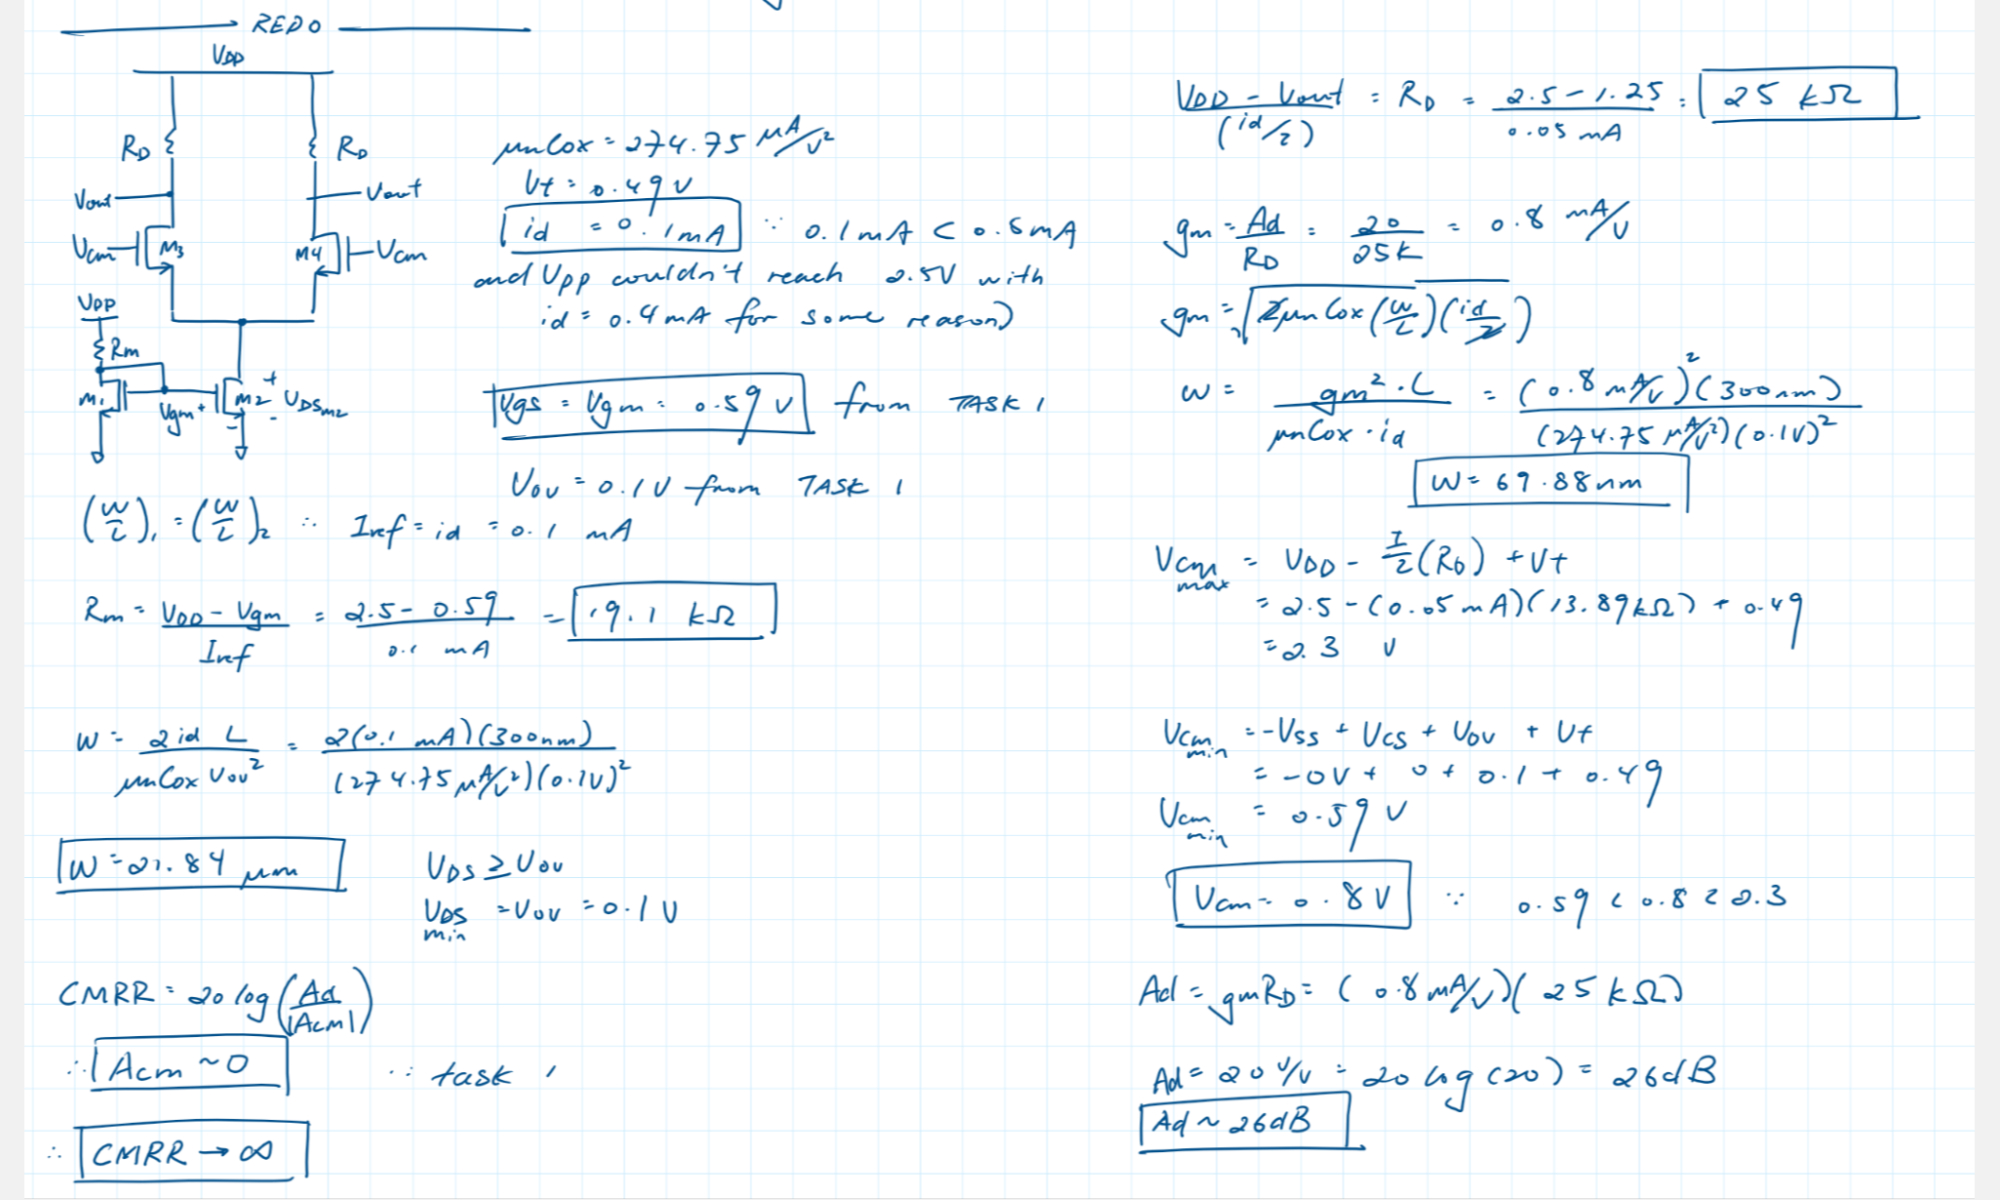 REDO
VDD
RD
RD
Vout
Vout
Vcm
M3
M4
Vcm
VDD
Rm
M1
Vgm
+
-
M2
+
VDSM2
-
μnCox = 274.75 μA/V²
Vt = 0.49 V
id = 0.1mA ∵ 0.1mA < 0.5mA
and VDD couldn't reach 2.5V with
id = 0.4mA for some reason)
Vgs = Vgm = 0.59 V from TASK 1
Vov = 0.1V from TASK 1
(W/L)₁ = (W/L)₂ ∴ Iref = id = 0.1 mA
Rm = (VDD - Vgm)/Iref = (2.5 - 0.59)/0.1 mA = 19.1 kΩ
W = 2 id L/(μnCox Vov²) = 2(0.1 mA)(300nm)/((274.75 μA/V²)(0.1V)²)
W = 21.84 μm
VDS ≥ Vov
VDS min = Vov = 0.1 V
CMRR = 20 log(Ad/|Acm|)
∴ Acm ~ 0 ∵ task 1
∴ CMRR → ∞
(VDD - Vout)/(id/2) = RD = (2.5 - 1.25)/0.05 mA = 25 kΩ
gm = Ad/RD = 20/25k = 0.8 mA/V
gm = √(2μnCox(W/L)(id/2))
W = gm²·L/(μnCox·id) = (0.8 mA/V)²(300nm)/((274.75 μA/V²)(0.1V)²)
W = 69.88nm
Vcm max = VDD - I/2(RD) + Vt
= 2.5 - (0.05mA)(13.89kΩ) + 0.49
= 2.3 V
Vcm min = -VSS + VCS + Vov + Vt
= -0V + 0 + 0.1 + 0.49
Vcm min = 0.59 V
Vcm = 0.8V ∵ 0.59 < 0.8 < 2.3
Ad = gmRD = (0.8mA/V)(25 kΩ)
Ad = 20 V/V = 20 log(20) = 26dB
Ad ~ 26dB